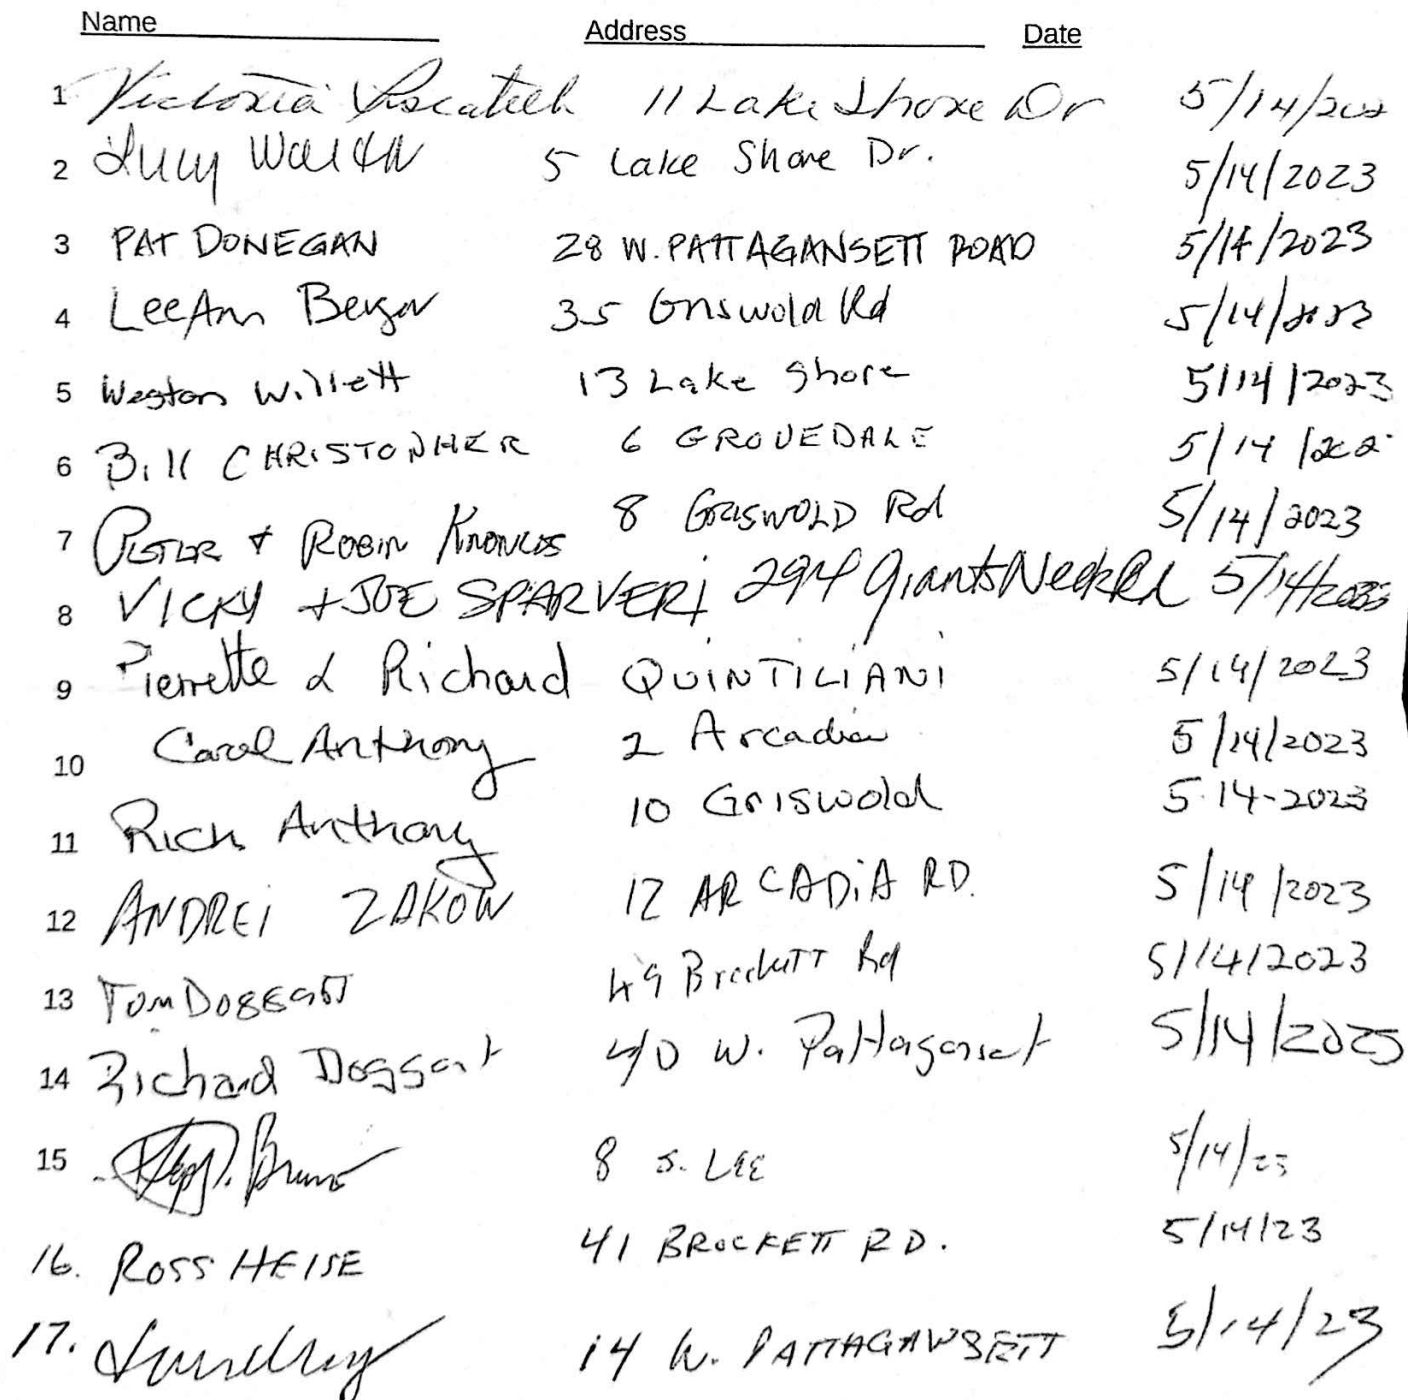 Name Address Date
1 Victoria 11 Lake Shore Dr 5/14/202
2 Lucy 5 Lake Shore Dr. 5/14/2023
3 PAT DONEGAN 28 W. PATTAGANSETT ROAD 5/14/2023
4 LeeAnn Berger 35 Griswold Rd 5/14/2023
5 Weston Willett 13 Lake Shore 5/14/2023
6 Bill CHRISTOPHER 6 GROVEDALE 5/14/202
7 PETER + ROBIN 8 GRISWOLD Rd 5/14/2023
8 VICKY + JOE SPARVERI 294 Giants Neck Rd 5/14/2023
9 Pierrette & Richard QUINTILIANI 5/14/2023
10 Carol Anthony 2 Arcadia 5/14/2023
11 Rich Anthony 10 Griswold 5-14-2023
12 ANDREI ZAKOW 12 ARCADIA RD. 5/14/2023
13 TOM DOGGART 49 Brockett Rd 5/14/2023
14 Richard Doggart 40 W. Pattagansett 5/14/2023
15 Bruno 8 S. LEE 5/14/23
16. ROSS HEISE 41 BROCKETT RD. 5/14/23
17. 14 W. PATTAGANSETT 5/14/23